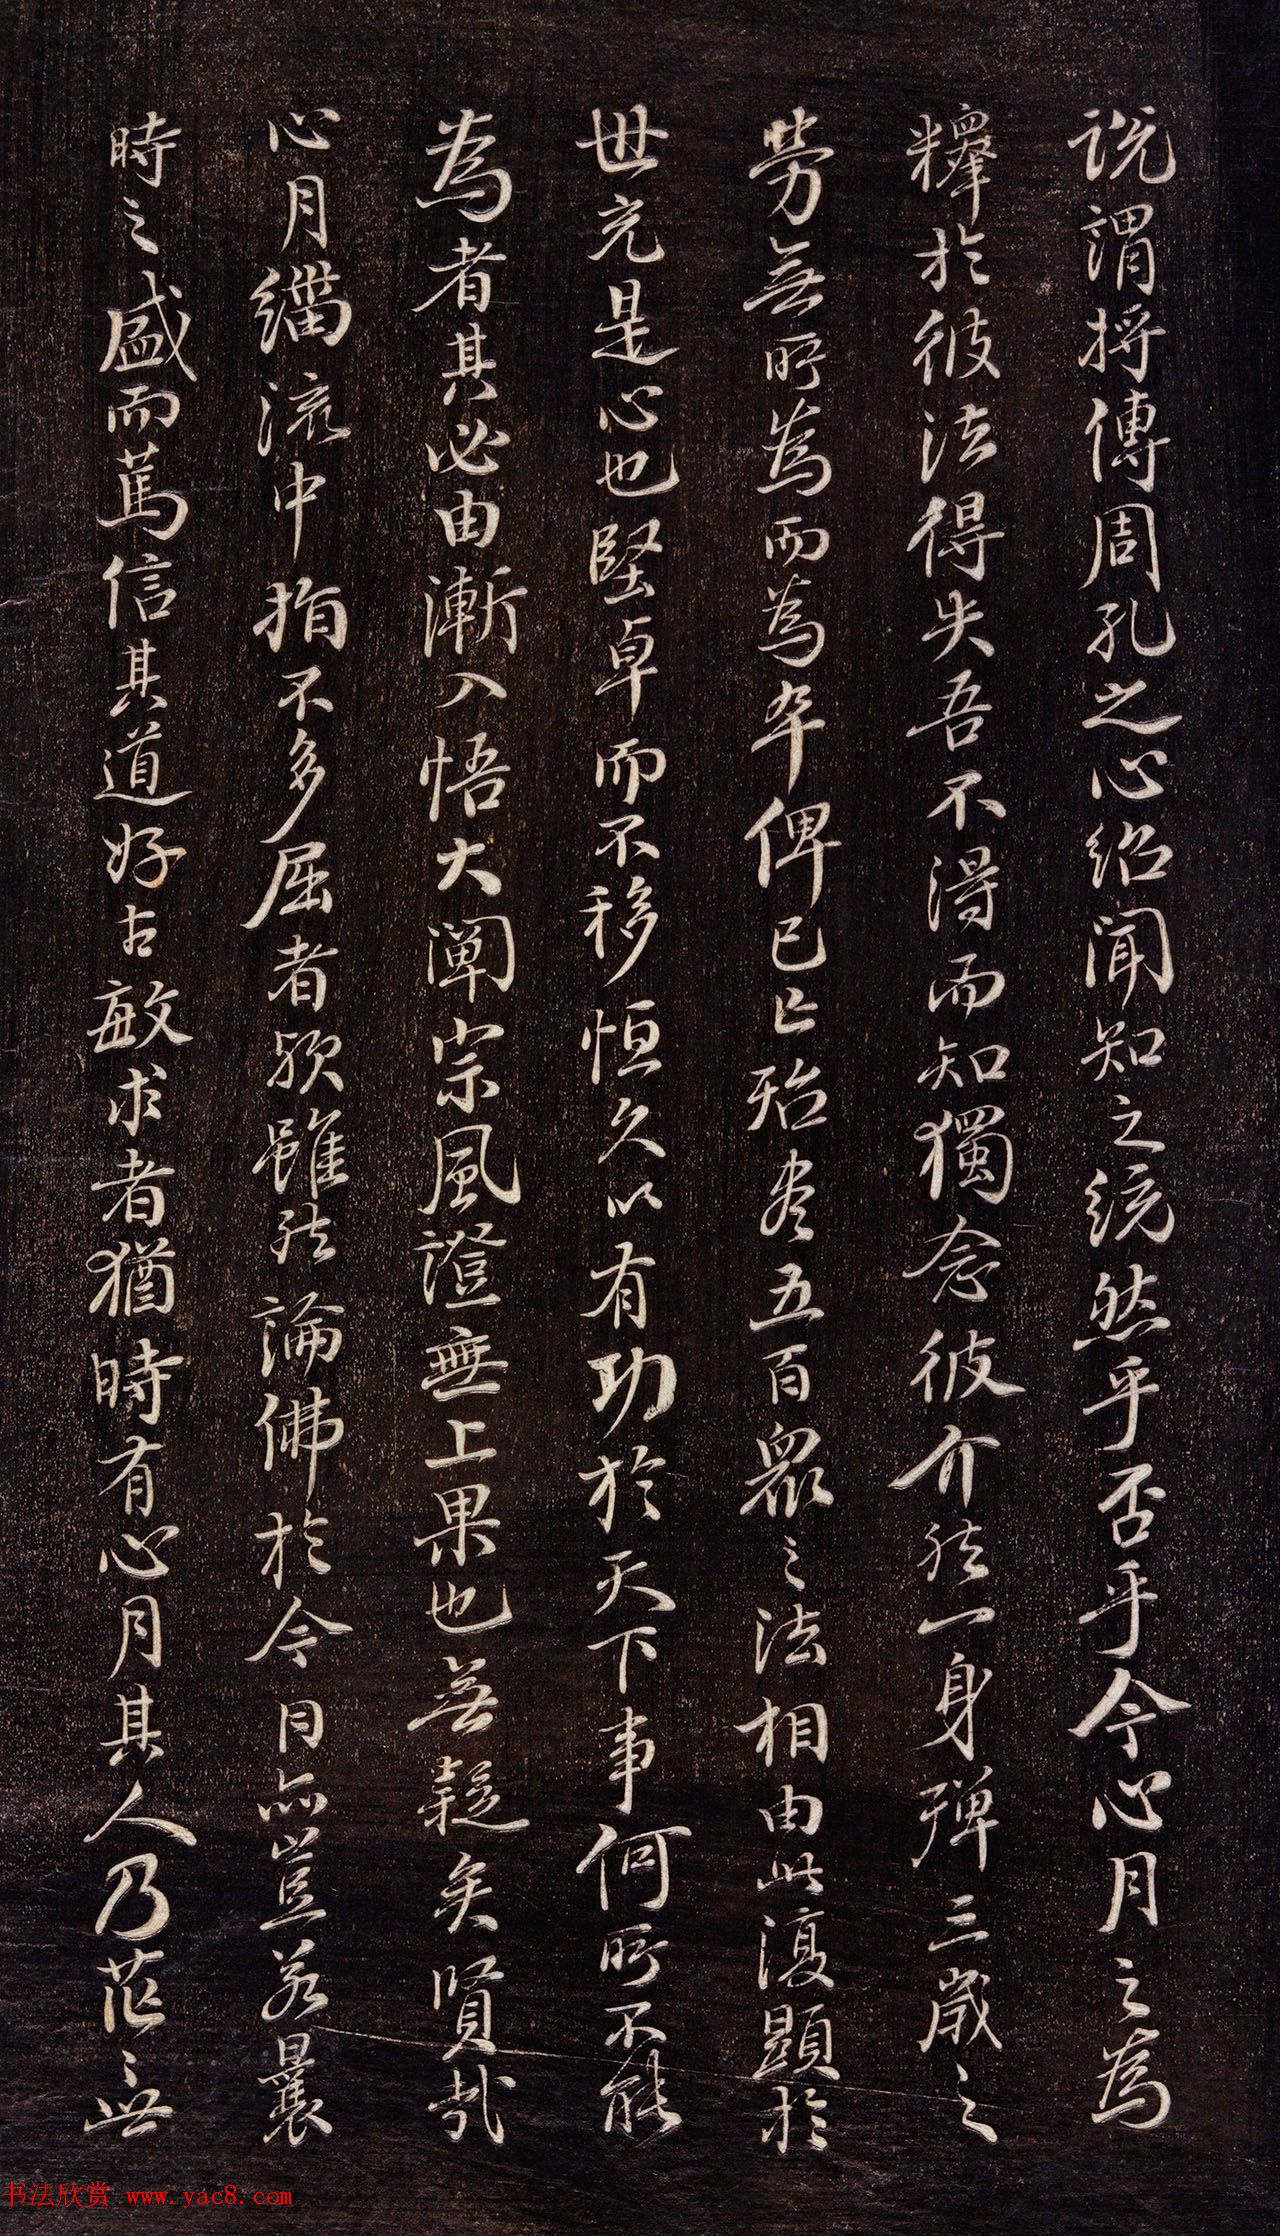 説謂將傳周孔之心紹聞知之統然乎否乎今心月之為
釋於彼法得失吾不得而知獨念彼介然一身殫三歲之
勞無所為而為卒俾已亡殆盡五百眾之法相由此復顯於
世充是心也堅卓而不移恒久以有功於天下事何所不能
為者其必由漸入悟大闡宗風證無上果也無疑矣賢哉
心月緇流中指不多屈者歟雖然論佛於今日亦豈若曩
時之盛而篤信其道好古敏求者猶時有心月其人乃茫茫
书法欣赏 www.yac8.com